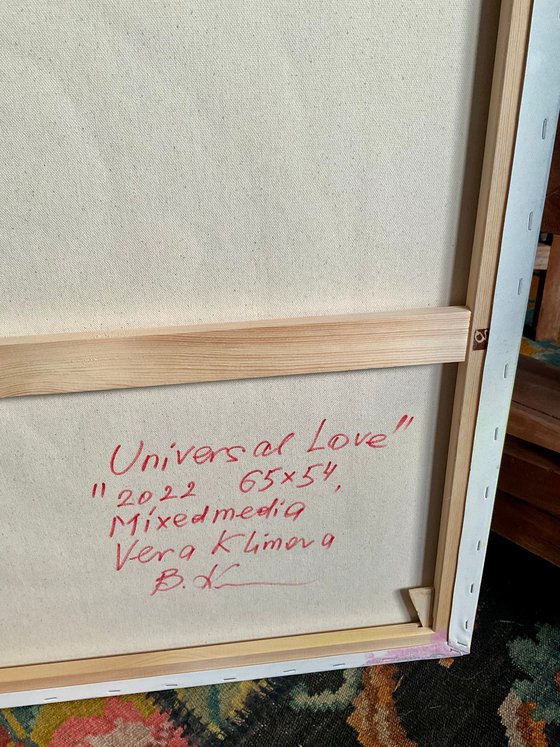 Universal Love"
"2022 65x54,
Mixedmedia
Vera Klimova
В.